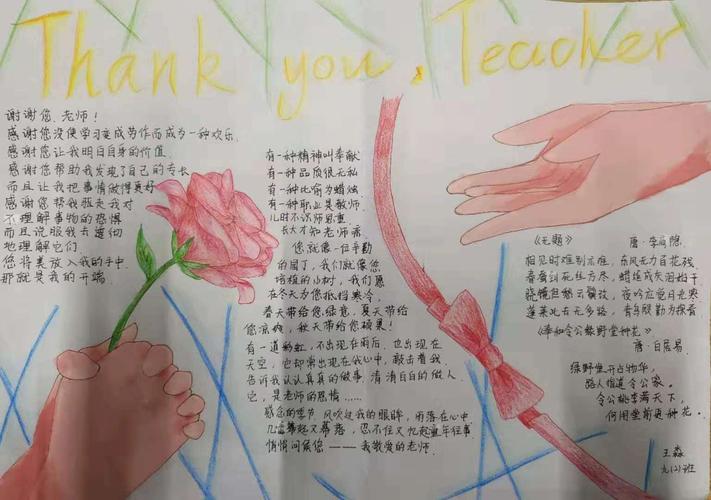 Thank you, Teacher
谢谢您,老师!
感谢您没使学习变成劳作而成为一种欢乐.
感谢您让我明白自身的价值.
感谢您帮助我发现了自己的专长
而且让我把事情做得更好
感谢您帮我驱走我对
不理解事物的恐惧
而且说服我去透彻
地理解它们
您将美放入我的手中.
那就是我的开端.
有一种精神叫奉献
有一种品质很无私
有一种比喻为蜡烛
有一种职业是教师.
儿时不识师恩重.
长大才知老师
您就像一位辛勤
的园丁,我们就像您
培植的小树,我们愿
在冬天为您抵挡寒冷.
春天带给您绿意,夏天带给
您凉爽,秋天带给您硕果!
有一道彩虹,不出现在雨后.也出现在
天空,它却常出现在我心中,敲击着我
告诉我认认真真的做事.清清白白的做人.
它,是老师的恩情……
感念的季节,风吹过我的眼眸,雨落在心中
几幕又幕落,忍不住又忆起童年往事
悄悄问候您——我敬爱的老师.
《无题》 唐·李商隐.
相见时难别亦难,东风无力百花残
春蚕到死丝方尽,蜡炬成灰泪始干
晓镜但愁云鬓改,夜吟应觉月光寒
蓬莱此去无多路,青鸟殷勤为探看
《奉和令公绿野堂种花》
唐·白居易.
绿野堂开占物华,
路人指道令公家.
令公桃李满天下,
何用堂前更种花.
王淼
九(2)班